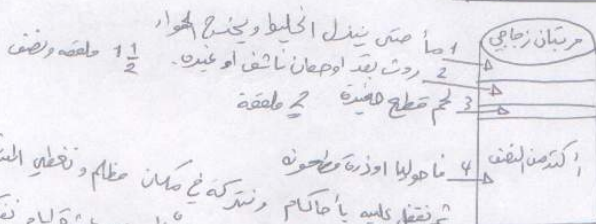 مرتبان زجاجي
1 ماء حتى ينزل الخليط ويخرج الهواء
2 روث بقر او حصان ناشف او غيره. 1 1/2 ملعقه ونصف
3 لحم قطع صغيرة 2 ملعقة
أكثر من النصف
4 فاصوليا او ذرة مطحونه
ثم نقفل عليه بأحكام ونتركه في مكان مظلم ونغطي